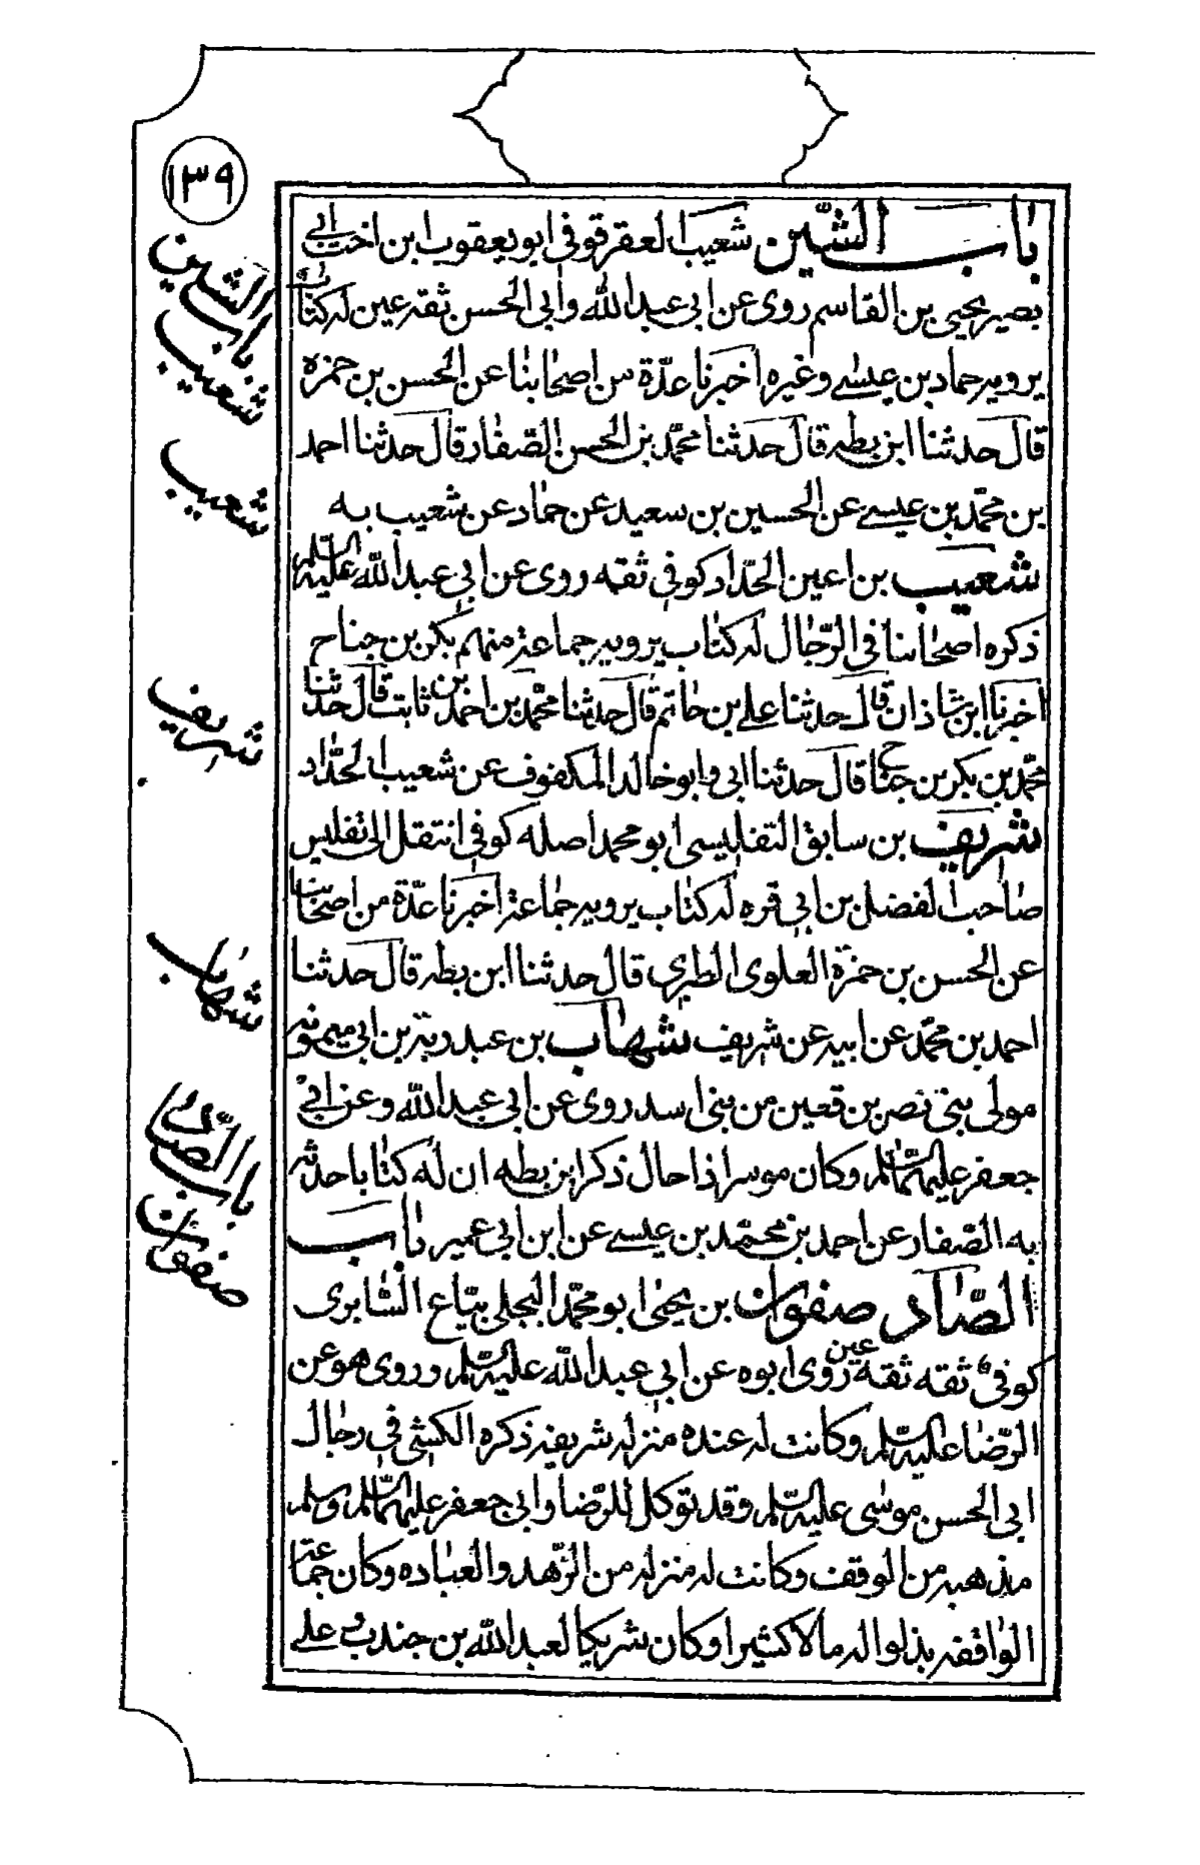 ١٣٩
باب الشّين شعيب العقرقوفى ابو يعقوب ابن اخت ابى
بصير يحيى بن القاسم روى عن ابى عبد الله وابى الحسن ثقة عين له كتاب
يرويه حماد بن عيسى وغيره اخبرنا عدّة من اصحابنا عن الحسن بن حمزه
قال حدثنا ابن بطه قال حدثنا محمّد بن الحسن الصّفار قال حدثنا احمد
بن محمّد بن عيسى عن الحسين بن سعيد عن حماد عن شعيب به
شعيب بن اعين الحدّاد كوفى ثقه روى عن ابى عبد الله عليه السّلم
ذكره اصحابنا فى الرّجال له كتاب يرويه جماعة منهم بكر بن جناح
اخبرنا ابن شاذان قال حدثنا على بن حاتم قال حدثنا محمّد بن احمد بن ثابت قال حدثنا
محمّد بن بكر بن جناح قال حدثنا ابى وابو خالد المكفوف عن شعيب الحدّاد
شريف بن سابق التفليسى ابو محمد اصله كوفى انتقل الى تفليس
صاحب الفضل بن ابى قره له كتاب يرويه جماعة اخبرنا عدّة من اصحابنا
عن الحسن بن حمزة العلوى الطبرى قال حدثنا ابن بطه قال حدثنا
احمد بن محمّد عن ابيه عن شريف شهاب بن عبد ربة بن ابى ميمونه
مولى بنى نصر بن قعين من بنى اسد روى عن ابى عبد الله وعن ابى
جعفر عليهما السّلم وكان موسرا ذا حال ذكر ابن بطه ان له كتابا حدثه
به الصّفار عن احمد بن محمّد بن عيسى عن ابن ابى عمير باب
الصّاد صفوان بن يحيى ابو محمّد البجلى بيّاع السّابرى
كوفىّ ثقه ثقة عين روى ابوه عن ابى عبد الله عليه السّلم وروى هو عن
الرّضا عليه السّلم وكانت له عنده منزله شريفة ذكره الكشى فى رجال
ابى الحسن موسى عليه السّلم وقد توكل للرّضا وابى جعفر عليهما السّلم وسلم
مذهبه من الوقف وكانت له منزله من الزّهد والعباده وكان جماعة
الواقفه بذلوا له مالا كثيرا وكان شريكا لعبد الله بن جندب وعلى
باب الشين
شعيب
شعيب
شريف
شهاب
باب الصّاد
صفوان